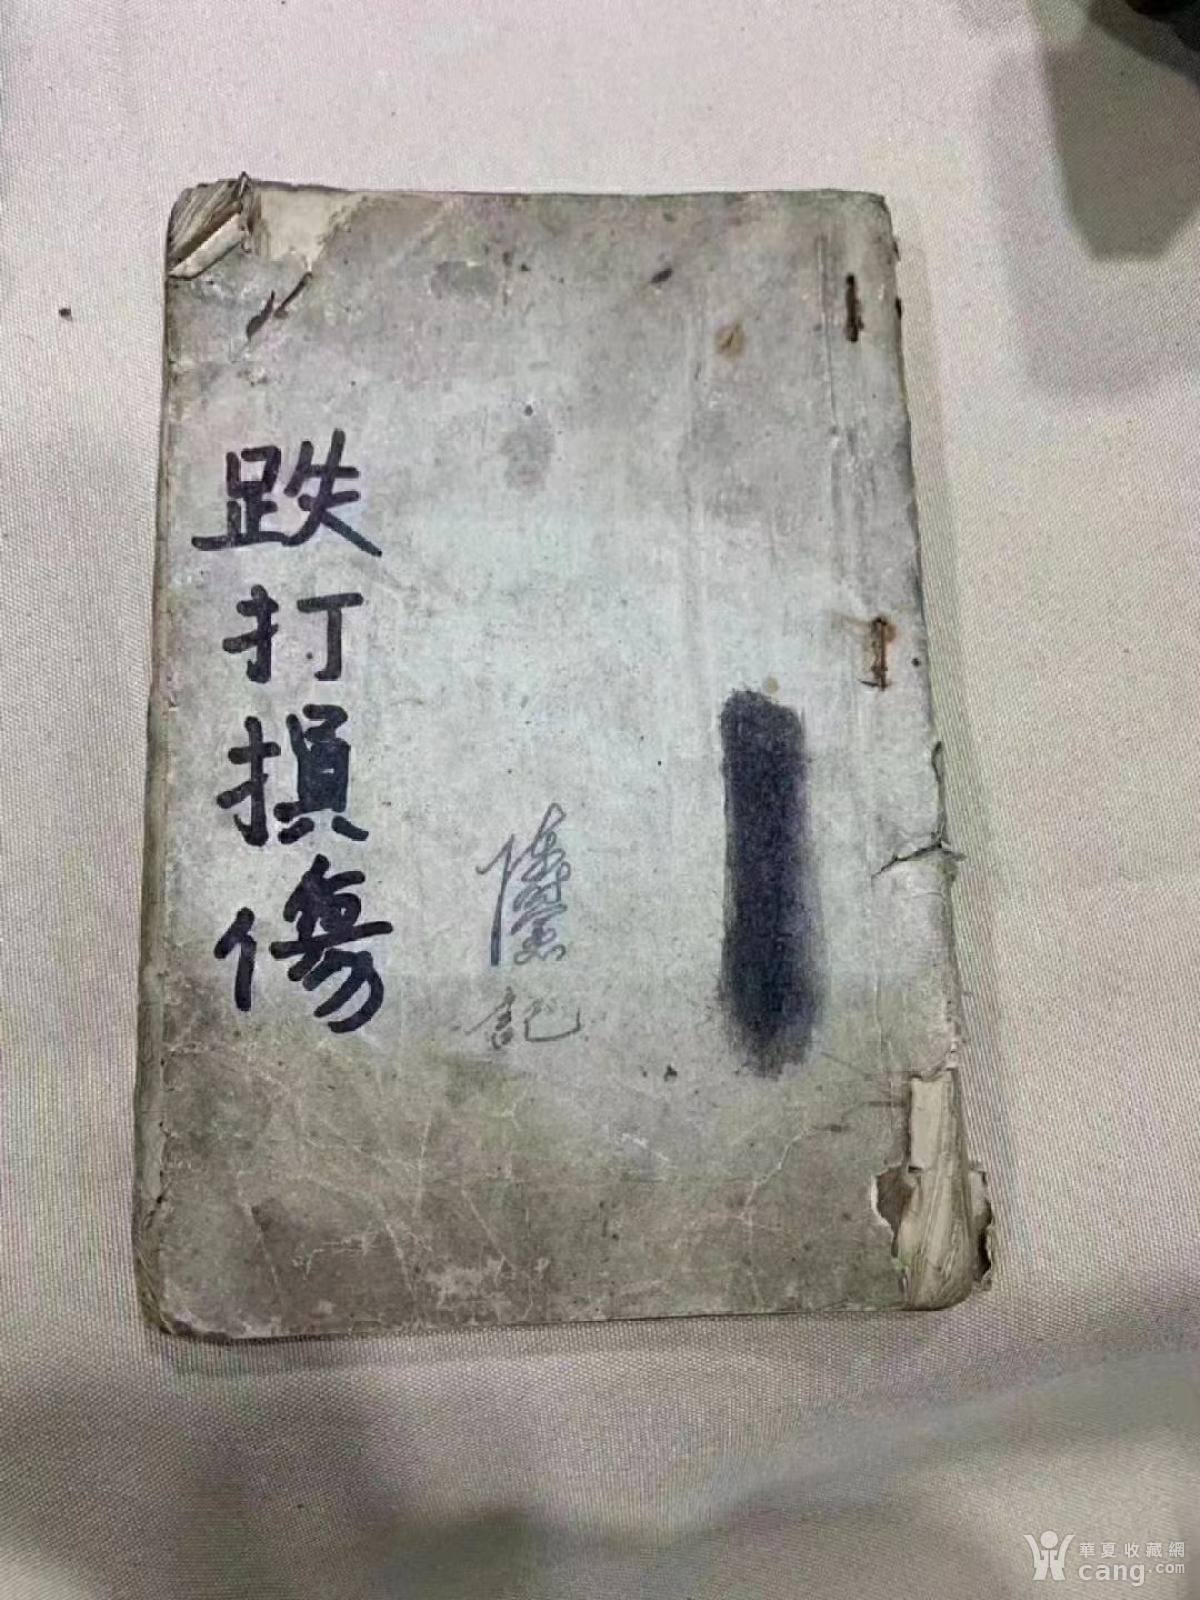 跌打損傷
記
華夏收藏網
cang.com